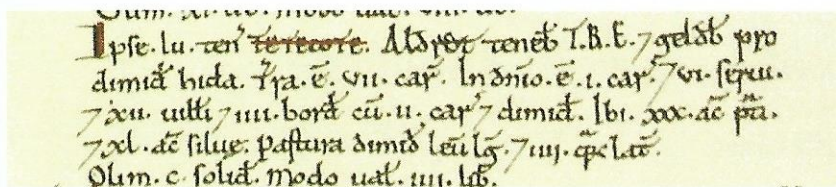 Olim . xl . sol . modo ual . 
Ipse . lu . ten̄ TETECOTE . Aldret teneb̄ T.R.E. ⁊ geldb̄ pro
dimid̄ hida . Tr̄a . ē . vii . car̄ . In dn̄io . ē . i . car̄ . ⁊ vi . serui .
⁊ xii . uilli ⁊ iiii . bord̄ cū . ii . car̄ ⁊ dimid̄ . Ibi . xxx . ac̄ p̄ti .
⁊ xl . ac̄ silue . Pastura dimid̄ leū lḡ . ⁊ iiii . q̄rc̄ lat̄ .
Olim . c . solid̄ . Modo ual . iiii . lib̄ .